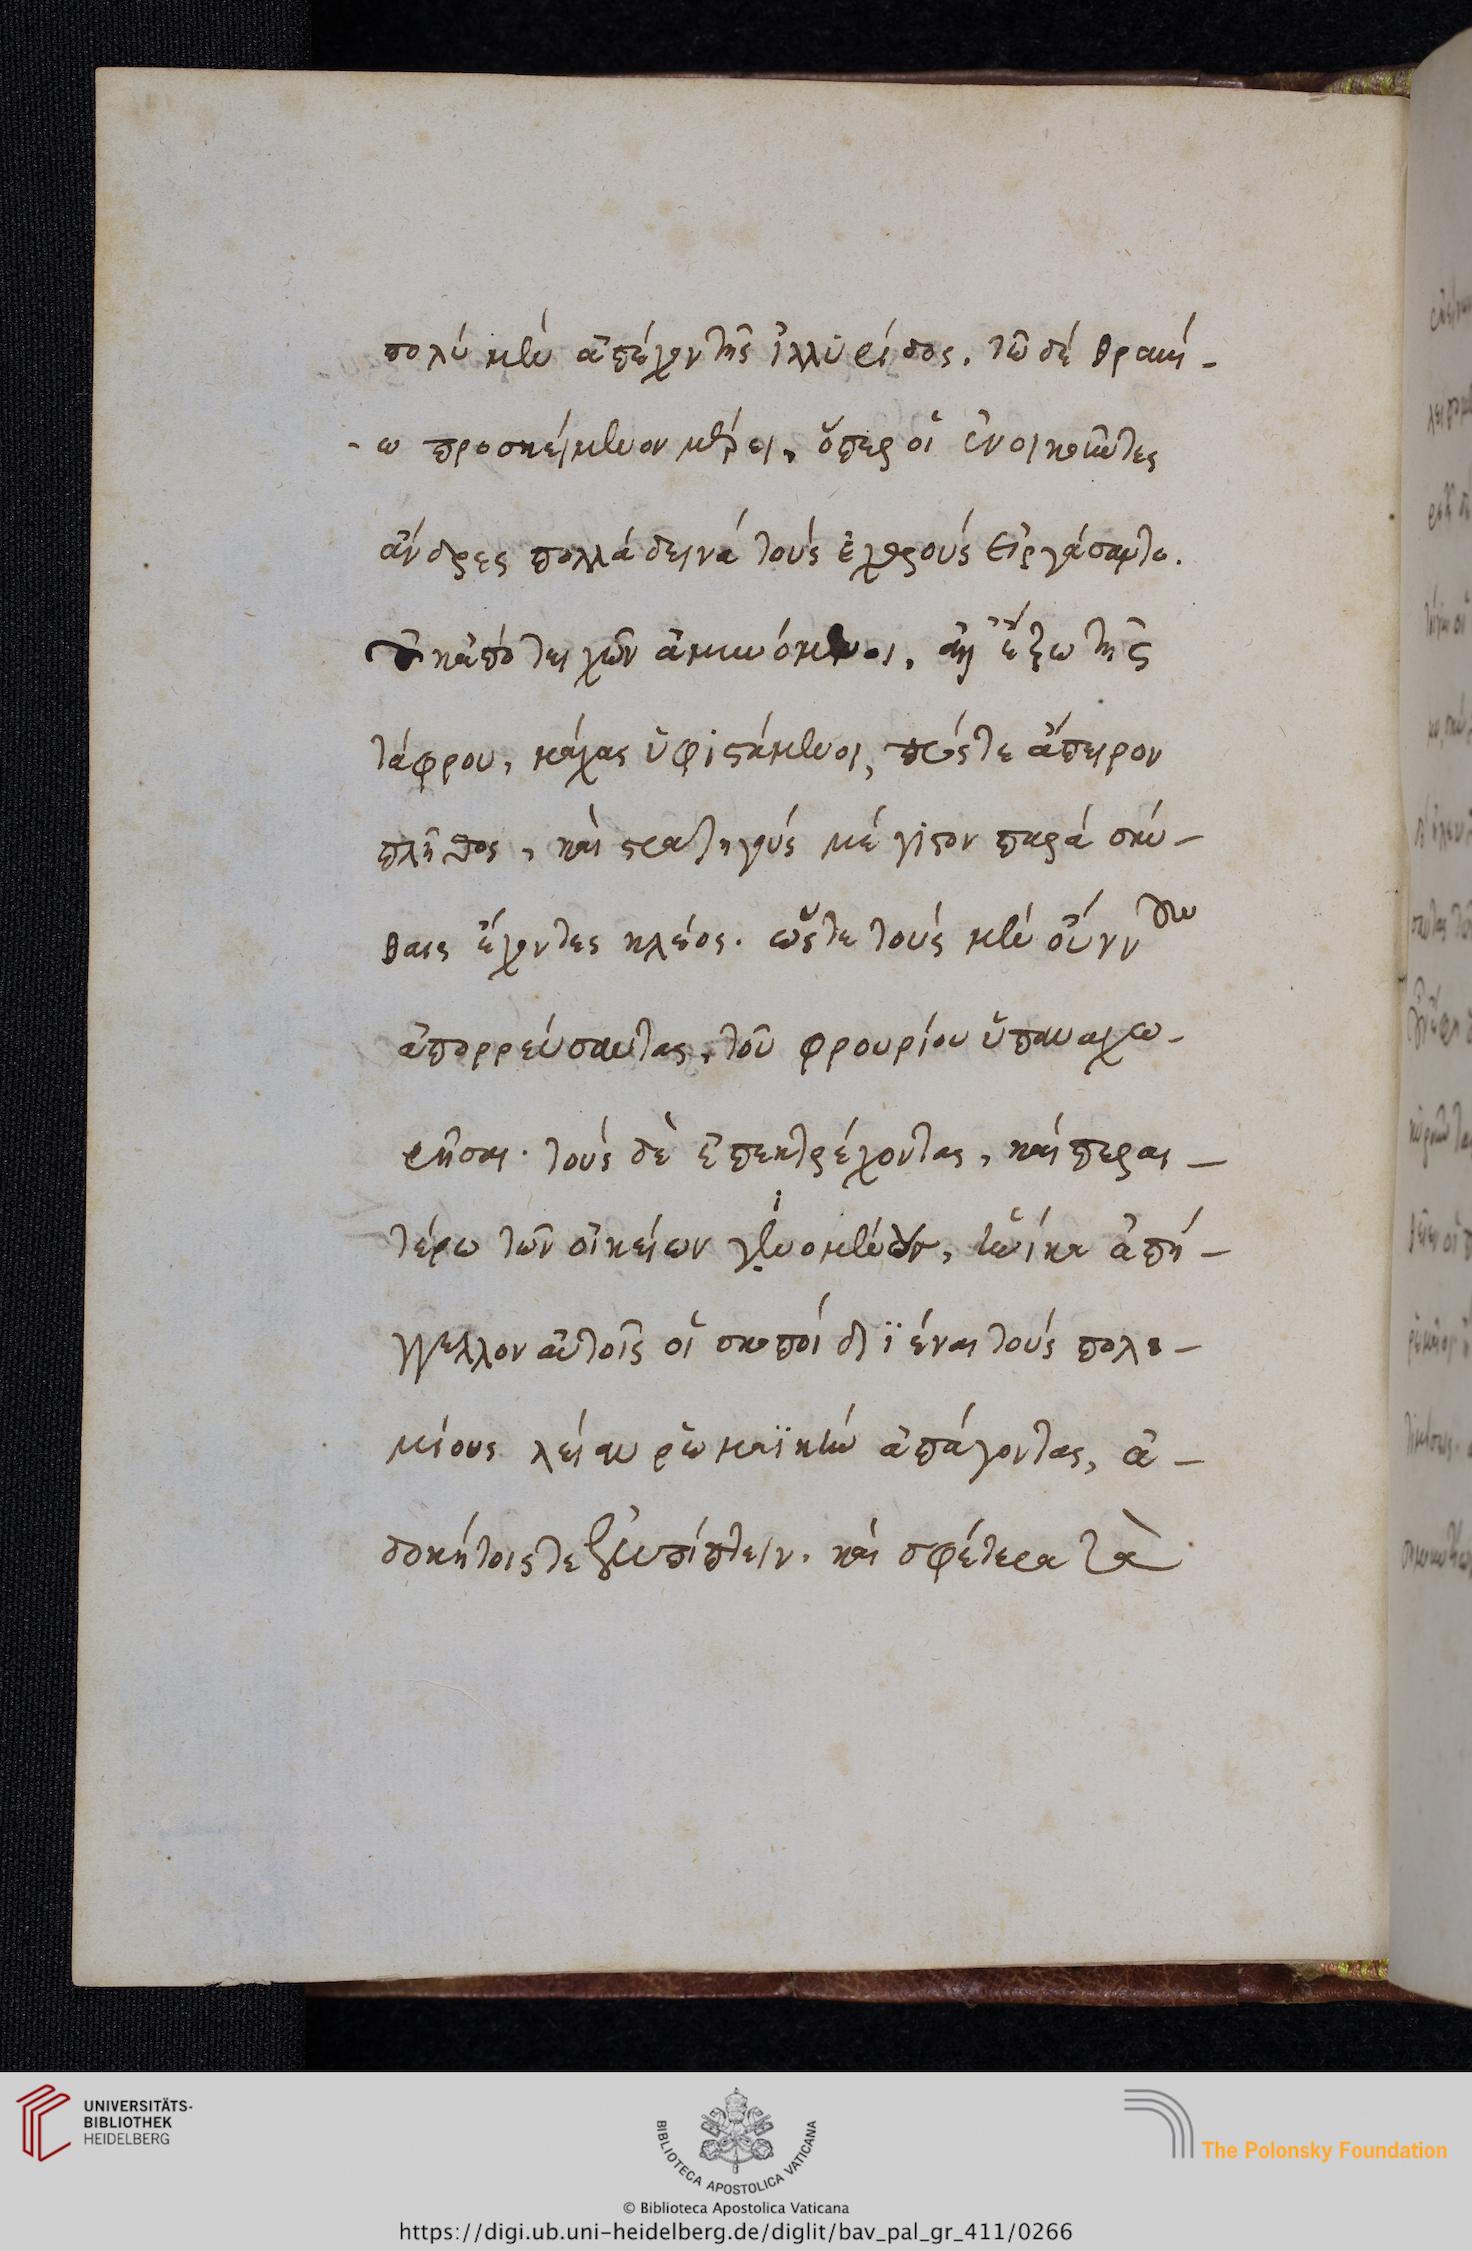 πολύ μὲν ἀπέχον τῆς ἰλλυρίδος. τῶ δέ θρακί-
-ω προσκείμενον μέρει, ὅπερ οἱ ἐνοικοῦντες
ἄνδρες πολλά δεινά τούς ἐχθρούς εἰργάσαντο.
οὐκ ἀπό τειχῶν ἀμυνόμενοι, ἀλλ' ἔξω τῆς
τάφρου, μάχας ὑφιστάμενοι, πρός τε ἄπειρον
πλῆθος, καὶ στρατηγούς μέγιστον παρά σκύ-
θαις ἔχοντες κλέος. ὥστε τούς μὲν οὔννους
ἀπορρεύσαντας, τοῦ φρουρίου ὑπαναχω-
ρῆσαι. τούς δὲ ἐπεκτρέχοντας, καί περαι-
τέρω τῶν οἰκείων γινομένων, ἡνίκα ἀπή-
γγελλον αὐτοῖς οἱ σκοποί διϊέναι τούς πολε-
μίους λείαν ῥωμαϊκήν ἀπάγοντας, ἀ-
δοκήτοις τε ἐμπίπτειν. καὶ σφέτερα τὰ
UNIVERSITÄTS-
BIBLIOTHEK
HEIDELBERG
BIBLIOTECA APOSTOLICA VATICANA
The Polonsky Foundation
© Biblioteca Apostolica Vaticana
https://digi.ub.uni-heidelberg.de/diglit/bav_pal_gr_411/0266